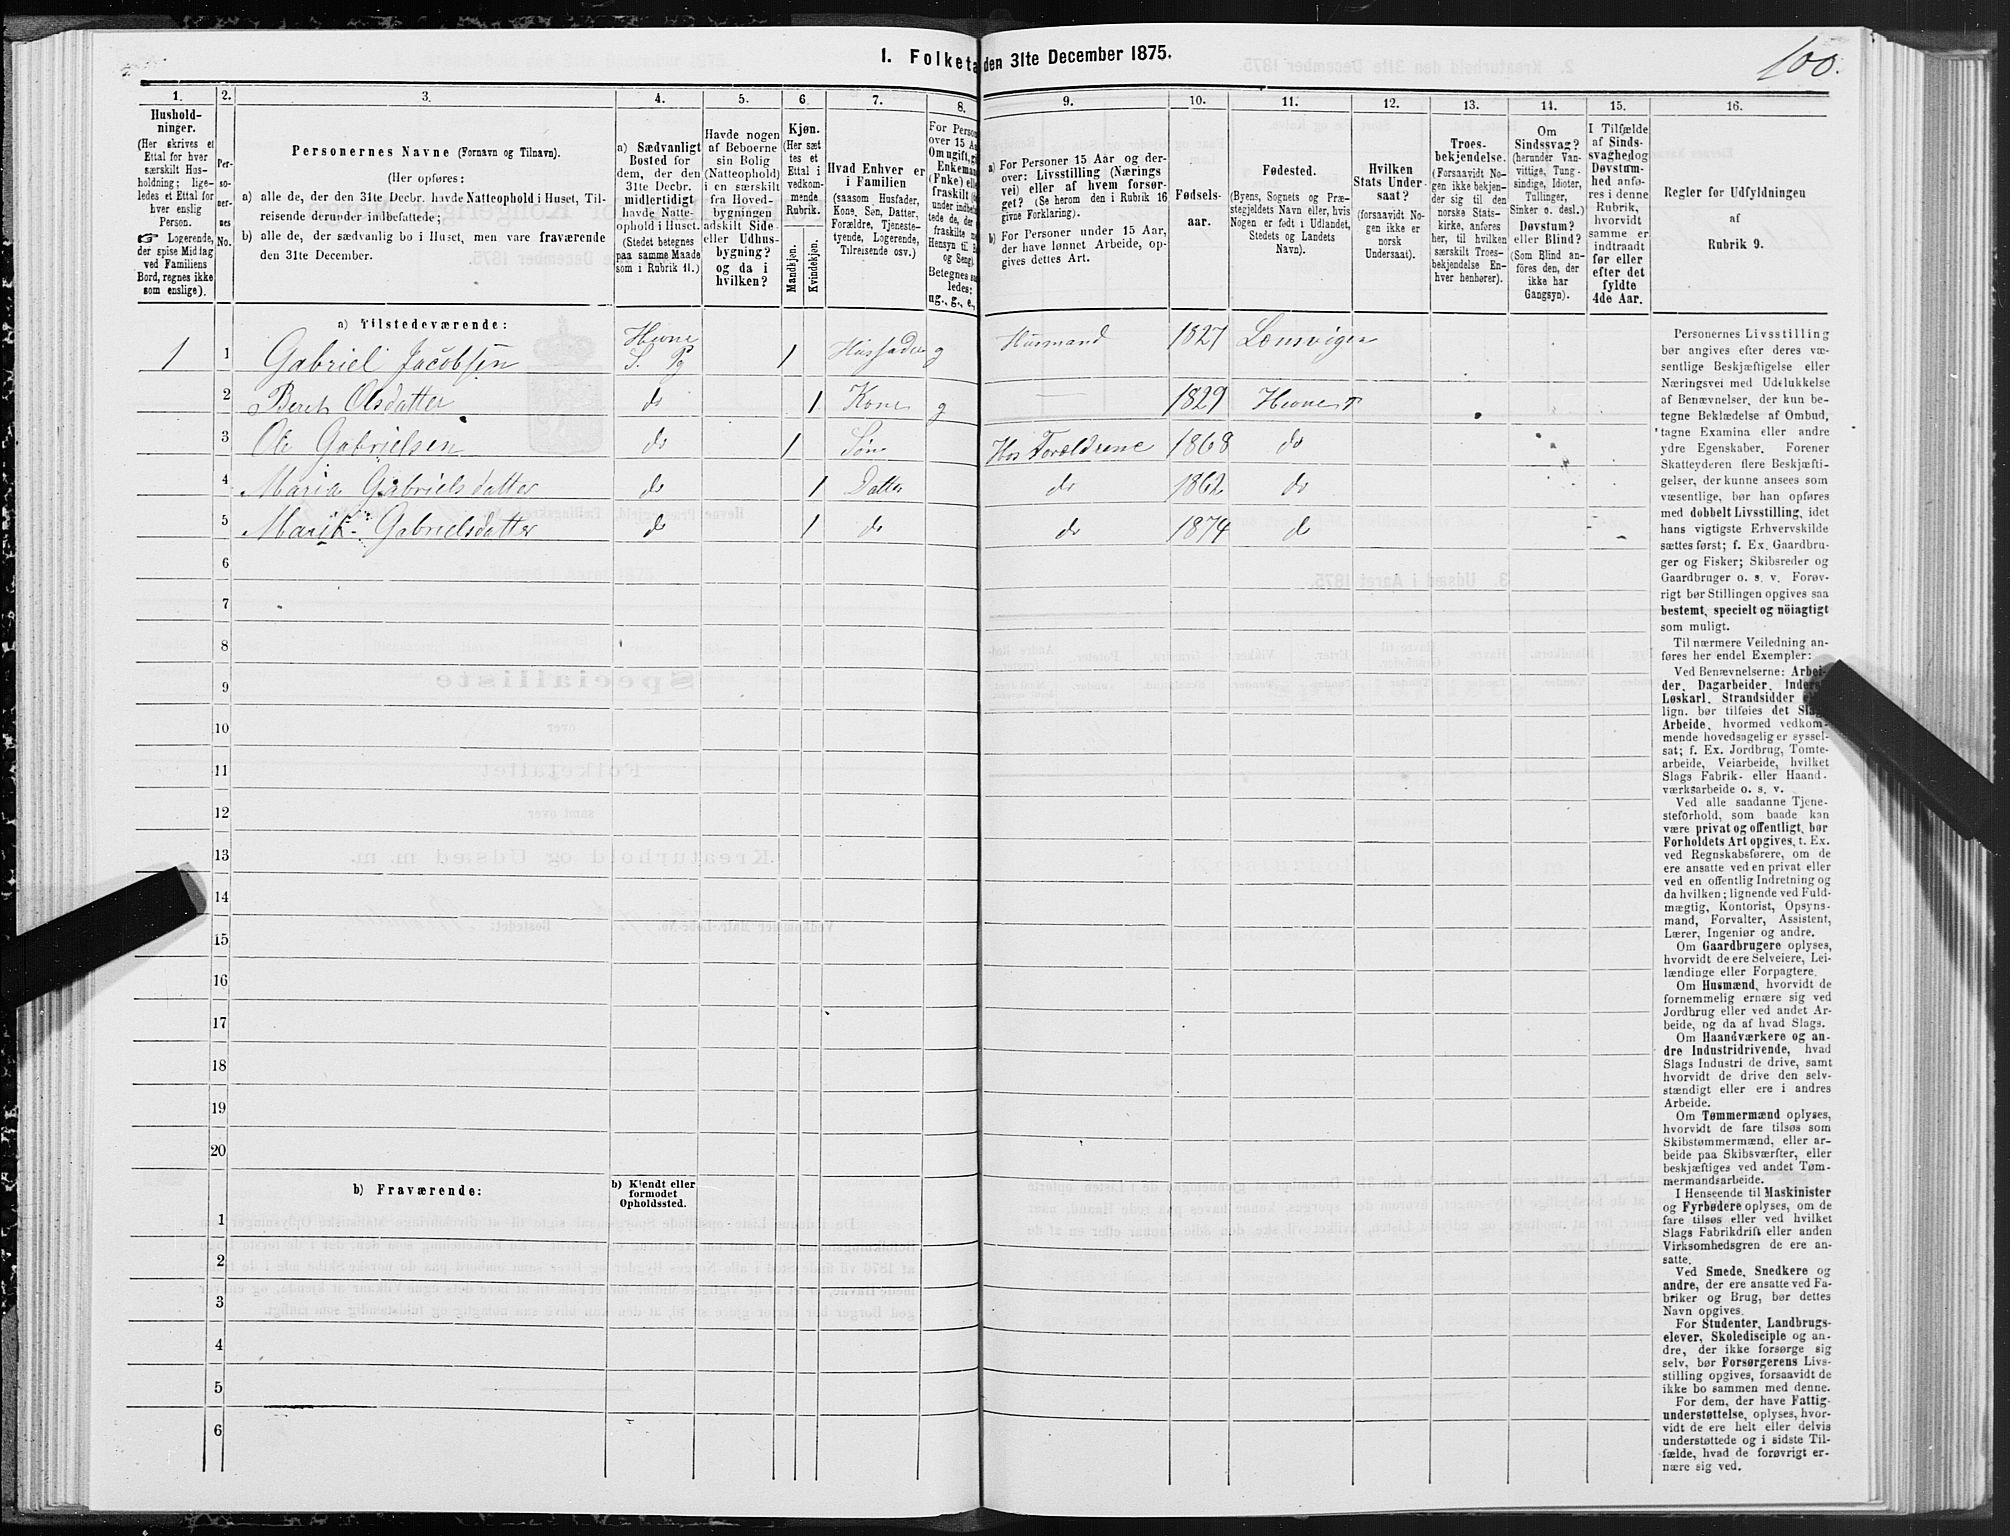 1. Folketa den 31te December 1875.
100.
1. 2. 3. 4. 5. 6. 7. 8. 9. 10. 11. 12. 13. 14. 15. 16.
Hushold-
ninger.
(Her skrives et
Ettal for hver
særskilt Hus-
holdning; lige-
ledes et Ettal for
hver enslig
Person.
☞ Logerende,
der spise Middag
ved Familiens
Bord, regnes ikke
som enslige).
Per-
so-
ner-
nes
No.
Personernes Navne (Fornavn og Tilnavn).
(Her opføres:
a) alle de, der den 31te Decbr. havde Natteophold i Huset, Til-
reisende derunder indbefattede;
b) alle de, der sædvanlig bo i Huset, men vare fraværende
den 31te December.
a) Sædvanligt
Bosted for
dem, der den
31te Decbr.
midlertidigt
havde Natte-
ophold i Huset.
(Stedet betegnes
paa samme Maade
som i Rubrik 11.)
Havde nogen
af Beboerne
sin Bolig
(Natteophold)
i en særskilt
fra Hoved-
bygningen
adskilt Side-
eller Udhus-
bygning?
og da i
hvilken?
Kjøn.
(Her sæt
tes et
Ettal i
vedkom-
mende
Rubrik.
Mandkjøn.
Kvindekjøn.
Hvad Enhver er
i Familien
(saasom Husfader,
Kone, Søn, Datter,
Forældre, Tjeneste-
tyende, Logerende,
Tilreisende osv.)
For Person
over 15 Aa
Om ugift, gi
Enkemand
(Fnke) elle
fraskilt (
under indbe
tede de, der
fraskilte m
Hensyn til B
og Seng).
Betegnes sa
ledes:
ug., g., e.,
a) For Personer 15 Aar og der-
over: Livsstilling (Nærings
vei) eller af hvem forsør-
get? (Se herom den i Rubrik 16
givne Forklaring).
b) For Personer under 15 Aar,
der have lønnet Arbeide, op-
gives dettes Art.
Fødsels-
aar.
Fødested.
(Byens, Sognets og Præ-
stegjeldets Navn eller, hvis
Nogen er født i Udlandet,
Stedets og Landets
Navn).
Hvilken
Stats Under-
saat?
(forsaavidt No-
gen ikke er
norsk
Undersaat).
Troes-
bekjendelse.
(Forsaavidt No-
gen ikke bekjen-
der sig til den
norske Stats-
kirke, anføres
her, til hvilken
særskilt Troes-
bekjendelse En-
hver henhører).
Om
Sindssvag?
(herunder Van-
vittige, Tung-
sindige, Idioter,
Tullinger,
Sinker o. desl.)
Døvstum?
eller Blind?
(Som Blind an-
føres den, der
ikke har
Gangsyn).
I Tilfælde
af Sinds-
svaghed og
Døvstum-
hed anfø-
res i denne
Rubrik,
hvorvidt
samme er
indtraadt
før eller
efter det
fyldte
4de Aar.
Regler for Udfyldningen
af
Rubrik 9.
a) Tilstedeværende:
1 1 Gabriel Jacobsen Hevne S. Pg 1 Husfader g Husmand 1827 Lemvigen
2 Beret Olsdatter do 1 Kone g — 1829 Hevne
3 Ole Gabrielsen do 1 Søn Hos Forældrene 1868 do
4 Maria Gabrielsdatter do 1 Datter do 1862 do
5 Marit Gabrielsdatter do 1 do do 1874 do
6
7
8
9
10
11
12
13
14
15
16
17
18
19
20
b) Fraværende:
b) Kjendt eller
formodet
Opholdssted.
1
2
3
4
5
6
Personernes Livsstilling
bør angives efter deres væ-
sentlige Beskjæftigelse eller
Næringsvei med Udelukkelse
af Benævnelser, der kun be-
tegne Beklædelse af Ombud,
tagne Examina eller andre
ydre Egenskaber. Forener
Skatteyderen flere Beskjæfti-
gelser, der kunne ansees som
væsentlige, bør han opføres
med dobbelt Livsstilling, idet
hans vigtigste Erhvervskilde
sættes først; f. Ex. Gaardbru-
ger og Fisker; Skibsreder og
Gaardbruger o. s. v. Forøv-
rigt bør Stillingen opgives saa
bestemt, specielt og nöiagtigt
som muligt.
Til nærmere Veiledning an-
føres her endel Exempler:
Ved Benævnelserne: Arbei-
der, Dagarbeider, Inders
Løskarl, Strandsidder
lign. bør tilføies det Slag
Arbeide, hvormed vedkom-
mende hovedsagelig er syssel-
sat; f. Ex. Jordbrug, Tomte-
arbeide, Veiarbeide, hvilket
Slags Fabrik- eller Haand-
værksarbeide o. s. v.
Ved alle saadanne Tjene-
steforhold, som baade kan
være privat og offentligt, bør
Forholdets Art opgives, t. Ex.
ved Regnskabsførere, om de
ere ansatte ved en privat eller
ved en offentlig Indretning og
da hvilken; lignende ved Fuld-
mægtig, Kontorist, Opsyns-
mand, Forvalter, Assistent,
Lærer, Ingeniør og andre.
Om Gaardbrugere oplyses,
hvorvidt de ere Selveiere, Lei-
lændinge eller Forpagtere.
Om Husmænd, hvorvidt de
fornemmelig ernære sig ved
Jordbrug eller ved andet Ar-
beide, og da af hvad Slags.
Om Haandværkere og an-
dre Industridrivende, hvad
Slags Industri de drive, samt
hvorvidt de drive den selv-
stændigt eller ere i andres
Arbeide.
Om Tømmermænd oplyses,
hvorvidt de fare tilsøs som
Skibstømmermænd, eller ar-
beide paa Skibsværfter, eller
beskjæftiges ved andet Tøm-
mermandsarbeide.
I Henseende til Maskinister
og Fyrbødere oplyses, om de
fare tilsøs eller ved hvilket
Slags Fabrikdrift eller anden
Virksomhedsgren de ere an-
satte.
Ved Smede, Snedkere og
andre, der ere ansatte ved Fa-
briker og Brug, bør dettes
Navn opgives.
For Studenter, Landbrugs-
elever, Skoledisciple og an-
dre, der ikke forsørge sig
selv, bør Forsørgerens Livs-
stilling opgives, forsaavidt de
ikke bo sammen med denne.
For dem, der have Fattig-
understøttelse, oplyses, hvor-
vidt de ere helt eller delvis
understøttede og i sidste Til-
fælde, hvad de forøvrigt er-
nære sig ved.